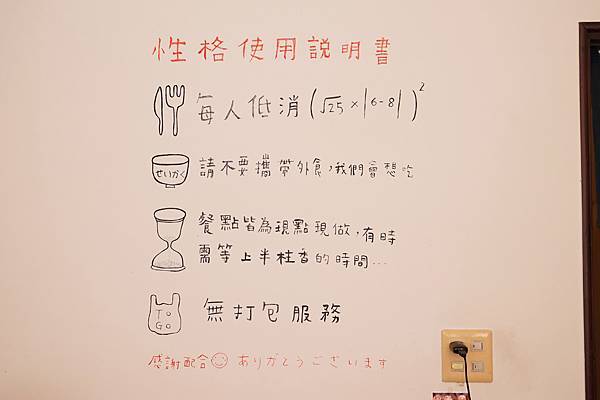 性格使用說明書
每人低消(√25×|6-8|)²
せいかく
請不要攜帶外食,我們會想吃
餐點皆為現點現做,有時
需等上半柱香的時間...
TO
GO
無打包服務
感謝配合☺ありがとうございます